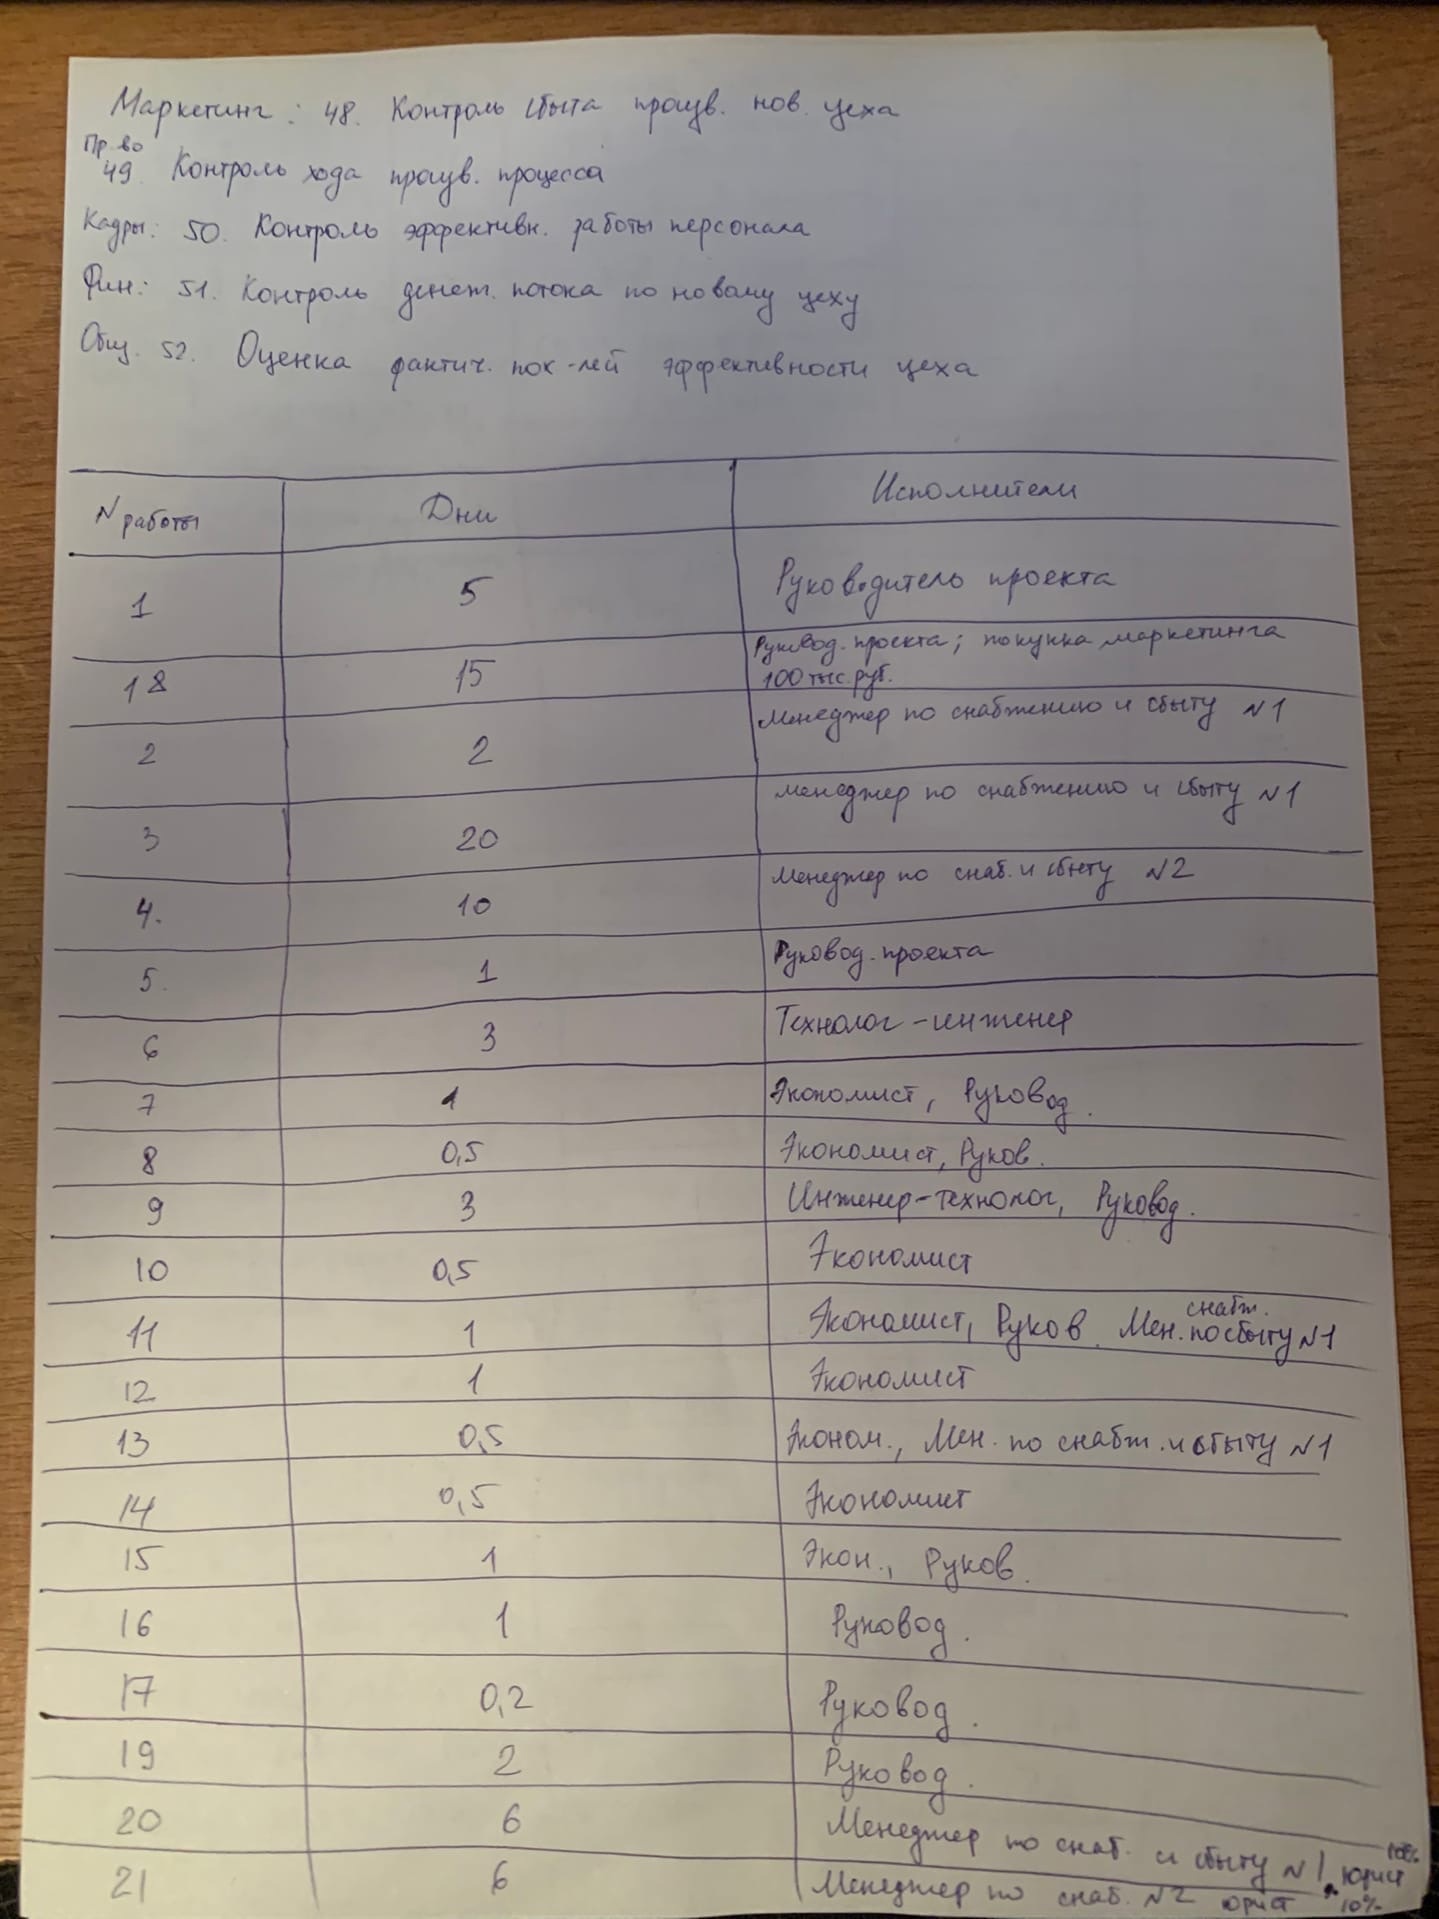 Маркетинг: 48. Контроль сбыта произв. нов. цеха
Пр-во
49. Контроль хода произв. процесса
Кадры: 50. Контроль эффективн. работы персонала
Фин: 51. Контроль денеж. потока по новому цеху
Общ. 52. Оценка фактич. пок-лей эффективности цеха
N работы Дни Исполнители
1 5 Руководитель проекта
18 15 Руковод. проекта; покупка маркетинга
100 тыс. руб.
2 2 Менеджер по снабжению и сбыту N1
3 20 Менеджер по снабжению и сбыту N1
4. 10 Менеджер по снаб. и сбыту N2
5. 1 Руковод. проекта
6 3 Технолог-инженер
7 1 Экономист, Руковод.
8 0,5 Экономист, Руков.
9 3 Инженер-технолог, Руковод.
10 0,5 Экономист
11 1 Экономист, Руков. Мен. снабж. по сбыту N1
12 1 Экономист
13 0,5 Эконом., Мен. по снабж. и сбыту N1
14 0,5 Экономист
15 1 Экон., Руков.
16 1 Руковод.
17 0,2 Руковод.
19 2 Руковод.
20 6 Менеджер по снаб. и сбыту N1, юрист
21 6 Менеджер по снаб. N2 юрист 10%